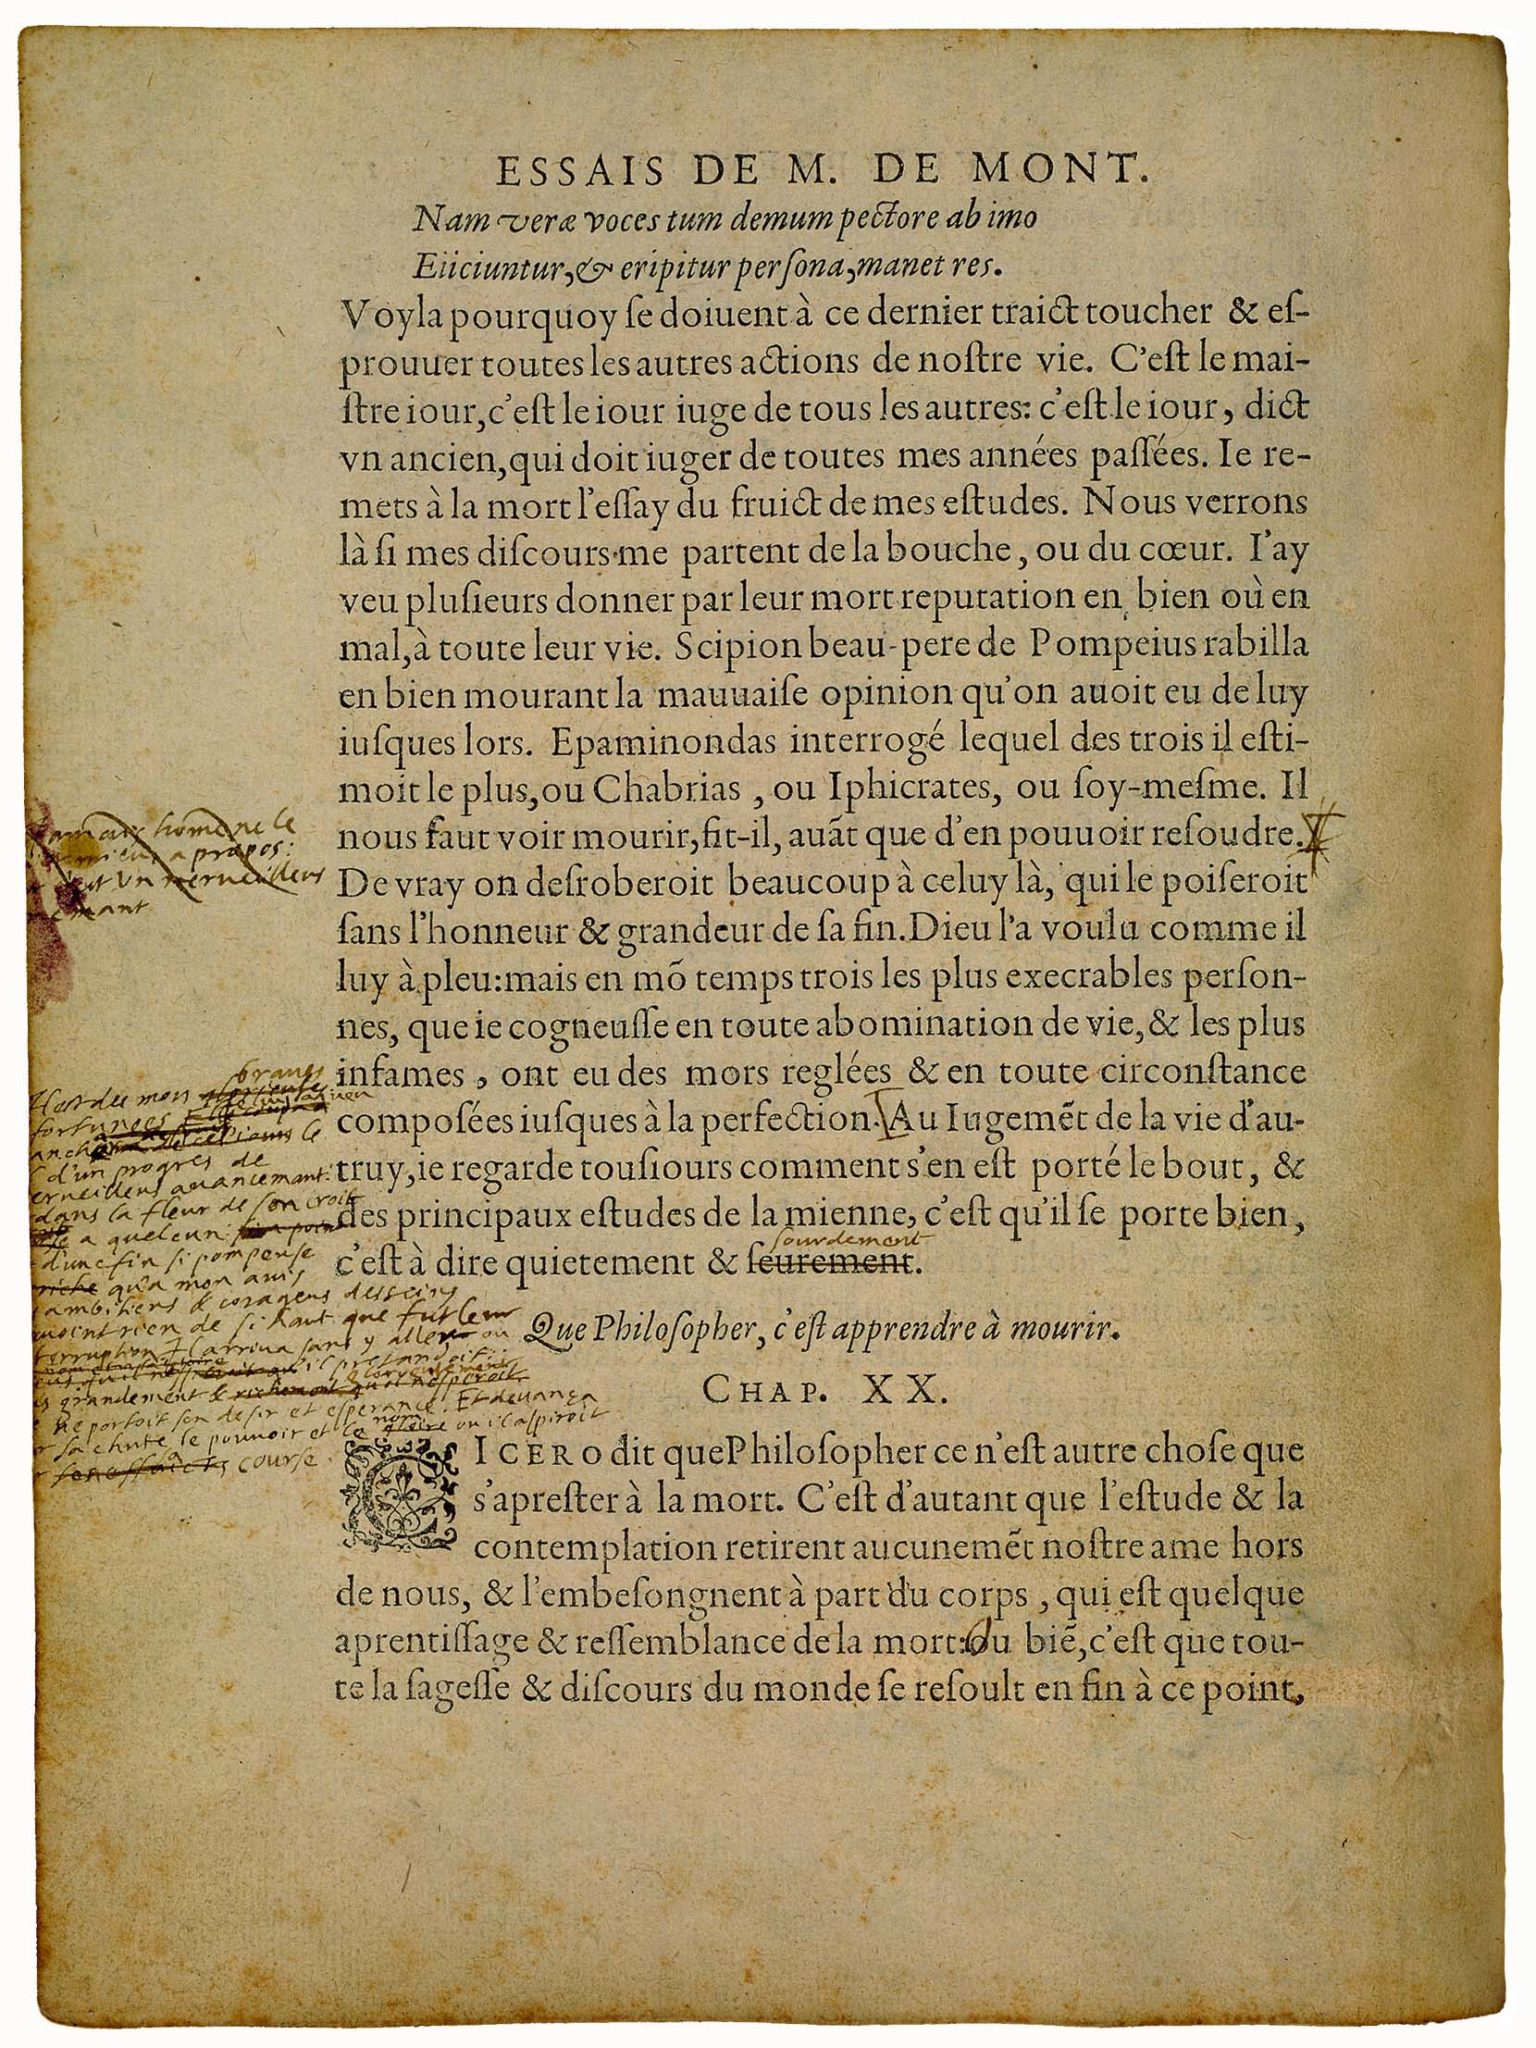 ESSAIS DE M. DE MONT.
Nam veræ voces tum demum pectore ab imo
Eiiciuntur, & eripitur perſona, manet res.
Voyla pourquoy ſe doiuent à ce dernier traict toucher & eſ-
prouuer toutes les autres actions de noſtre vie. C'eſt le mai-
ſtre iour, c'eſt le iour iuge de tous les autres: c'eſt le iour, dict
vn ancien, qui doit iuger de toutes mes années paſſées. Ie re-
mets à la mort l'eſſay du fruict de mes eſtudes. Nous verrons
là ſi mes diſcours me partent de la bouche, ou du cœur. I'ay
veu pluſieurs donner par leur mort reputation en bien où en
mal, à toute leur vie. Scipion beau-pere de Pompeius rabilla
en bien mourant la mauuaiſe opinion qu'on auoit eu de luy
iuſques lors. Epaminondas interrogé lequel des trois il eſti-
moit le plus, ou Chabrias, ou Iphicrates, ou ſoy-meſme. Il
nous faut voir mourir, fit-il, auãt que d'en pouuoir reſoudre.
De vray on deſroberoit beaucoup à celuy là, qui le poiſeroit
ſans l'honneur & grandeur de ſa fin. Dieu l'a voulu comme il
luy à pleu: mais en mõ temps trois les plus execrables perſon-
nes, que ie cogneuſſe en toute abomination de vie, & les plus
infames, ont eu des mors reglées & en toute circonſtance
compoſées iuſques à la perfection. Au Iugemẽt de la vie d'au-
truy, ie regarde touſiours comment s'en eſt porté le bout, &
des principaux eſtudes de la mienne, c'eſt qu'il ſe porte bien,
sourdement
c'eſt à dire quietement & ſeurement.
home ne le
a propos:
un merveilleus
braves
Il est des mors
fortunees
d'un progres de
avancemant:
dans la fleur de son croit
a quelcun
d'une fin si pompeuse
qu'a mon avis
ambitieus & corageus desseins
rien de si haut que fut leur
Il arriva sans y aller ou
il pretandoit:
grandement &
portoit son desir et esperance. Et devança
sa chute le pouvoir et le nom ou il aspiroit
course
Que Philoſopher, c'eſt apprendre à mourir.
CHAP. XX.
CICERO dit que Philoſopher ce n'eſt autre choſe que
s'apreſter à la mort. C'eſt d'autant que l'eſtude & la
contemplation retirent aucunemẽt noſtre ame hors
de nous, & l'embeſongnent à part du corps, qui eſt quelque
aprentiſſage & reſſemblance de la mort: Ou biẽ, c'eſt que tou-
te la ſageſſe & diſcours du monde ſe reſoult en fin à ce point,